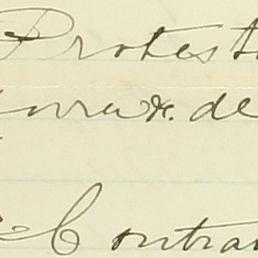 Protest
de
Contra